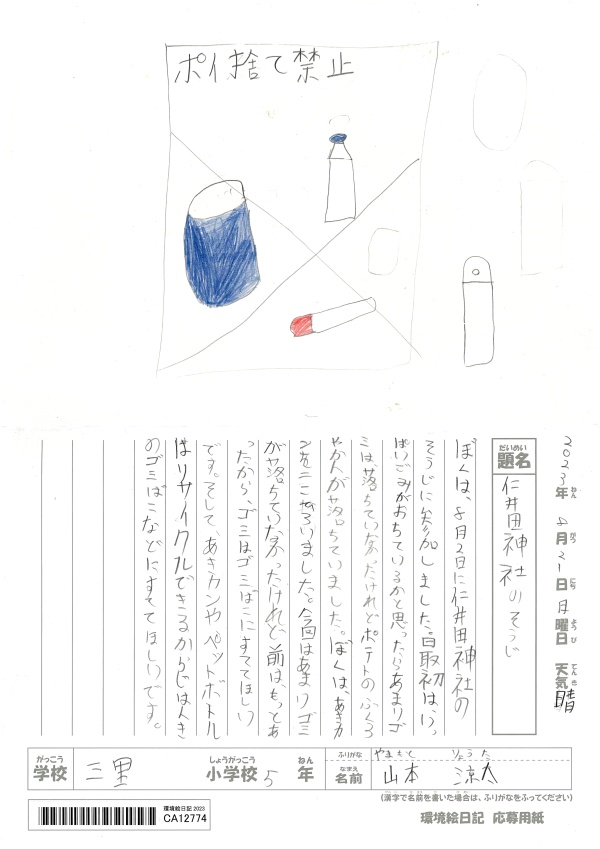 ポイ捨て禁止
2023年 8月21日 月曜日 天気 晴
ねん がつ にち ようび てんき
だいめい
題名 仁井田神社のそうじ
ぼくは、8月2日に仁井田神社の
そうじに参加しました。最初は、いっ
ぱいごみがおちているかと思ったらあまりゴ
ミは落ちていなかったけれどポテトのふくろ
やかんが落ちていました。ぼくは、あきカ
ンを二こ拾いました。今回はあまりゴミ
が落ちていなかったけれど前は、もっとあ
ったから、ゴミはゴミばこにすててほしい
です。そして、あきカンやペットボトル
はリサイクルできるから
のゴミばこなどにすててほしいです。
がっこう しょうがっこう ねん ふりがな やまもと りょうた
学校 三里 小学校 5年 なまえ 名前 山本 涼太
(漢字で名前を書いた場合は、ふりがなをふってください)
環境絵日記 2023
CA12774
環境絵日記 応募用紙